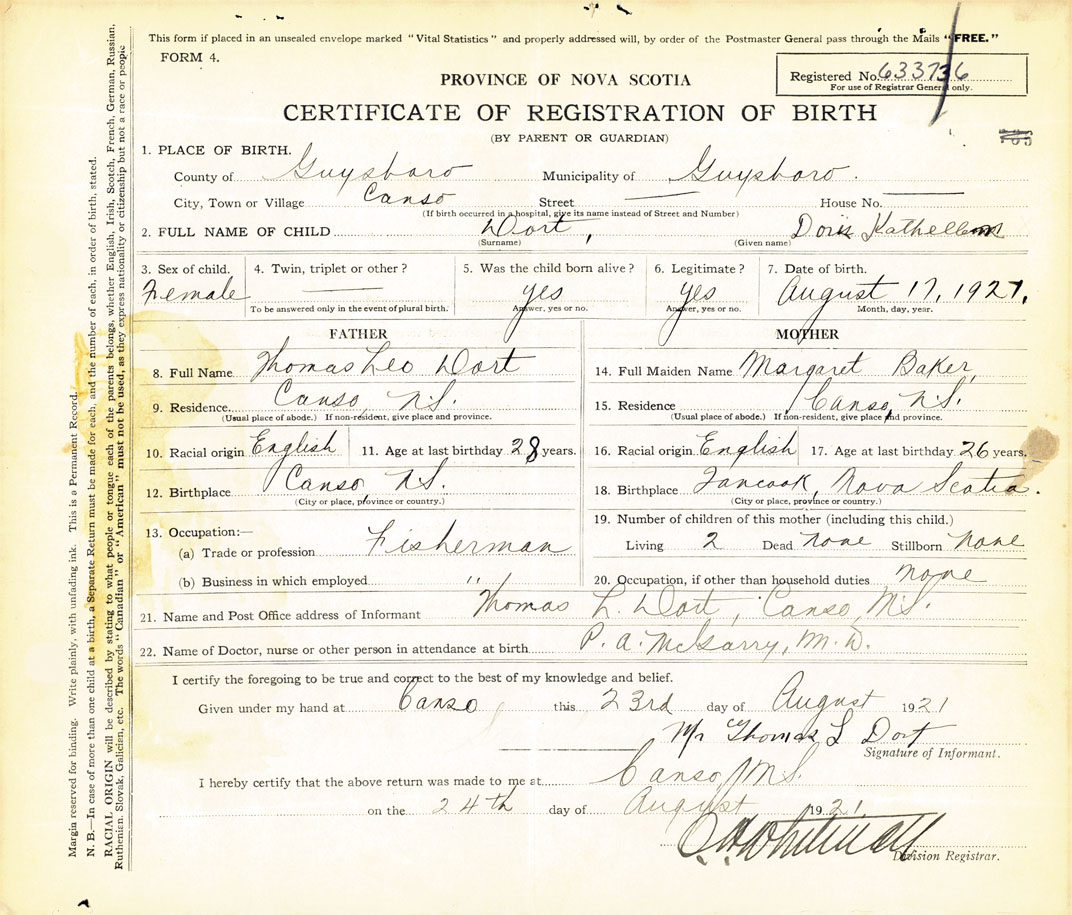 This form if placed in an unsealed envelope marked "Vital Statistics" and properly addressed will, by order of the Postmaster General pass through the Mails "FREE."
FORM 4.
Registered No. 633736
For use of Registrar General only.
PROVINCE OF NOVA SCOTIA
CERTIFICATE OF REGISTRATION OF BIRTH
(BY PARENT OR GUARDIAN)
1. PLACE OF BIRTH.
County of Guysboro Municipality of Guysboro.
City, Town or Village Canso Street House No.
(If birth occurred in a hospital, give its name instead of Street and Number)
2. FULL NAME OF CHILD Dort, Doris
(Surname) (Given name)
3. Sex of child. 4. Twin, triplet or other? 5. Was the child born alive? 6. Legitimate? 7. Date of birth.
Female yes yes August 17, 1921.
To be answered only in the event of plural birth. Answer, yes or no. Answer, yes or no. Month, day, year.
FATHER MOTHER
8. Full Name Thomas Leo Dort 14. Full Maiden Name Margaret Baker,
9. Residence Canso, N.S. 15. Residence Canso, N.S.
(Usual place of abode.) If non-resident, give place and province. (Usual place of abode.) If non-resident, give place and province.
10. Racial origin English 11. Age at last birthday 28 years. 16. Racial origin English 17. Age at last birthday 26 years.
12. Birthplace Canso, N.S. 18. Birthplace Tancook, Nova Scotia.
(City or place, province or country.) (City or place, province or country.)
13. Occupation:— 19. Number of children of this mother (including this child.)
(a) Trade or profession Fisherman Living 2 Dead none Stillborn none
(b) Business in which employed " 20. Occupation, if other than household duties none
21. Name and Post Office address of Informant Thomas L. Dort, Canso, N.S.
22. Name of Doctor, nurse or other person in attendance at birth P. A. McGarry, M.D.
I certify the foregoing to be true and correct to the best of my knowledge and belief.
Given under my hand at Canso this 23rd day of August 1921
Mr Thomas L Dort
Signature of Informant.
I hereby certify that the above return was made to me at Canso, N.S.
on the 24th day of August 1921
Whitman
Division Registrar.
Margin reserved for binding. Write plainly, with unfading ink. This is a Permanent Record.
N. B.—In case of more than one child at a birth, a Separate Return must be made for each, and the number of each, in order of birth, stated.
RACIAL ORIGIN will be described by stating to what people or tongue each of the parents belongs, whether English, Irish, Scotch, French, German, Russian,
Ruthenian, Slovak, Galician, etc. The words "Canadian" or "American" must not be used, as they express nationality or citizenship but not a race or people